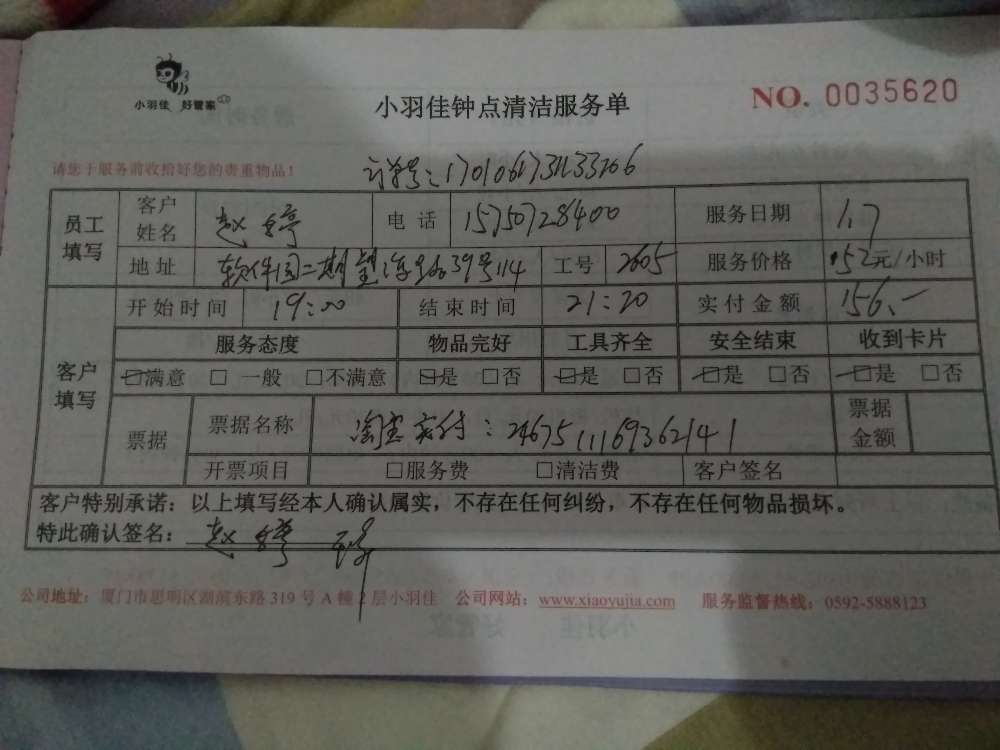 小羽佳 好管家
小羽佳钟点清洁服务单
NO. 0035620
请您于服务前收拾好您的贵重物品!
订单号:
员工填写 客户姓名 赵婷 电话 15750728400 服务日期 1.7
地址 软件园二期望海路39号114 工号 2605 服务价格 52元/小时
客户填写 开始时间 19:00 结束时间 21:20 实付金额 156.-
服务态度 物品完好 工具齐全 安全结束 收到卡片
☑满意 □ 一般 □不满意 ☑是 □否 ☑是 □否 ☑是 □否 ☑是 □否
票据 票据名称 淘宝支付:2467511169362141 票据金额
开票项目 □服务费 □清洁费 客户签名
客户特别承诺:以上填写经本人确认属实,不存在任何纠纷,不存在任何物品损坏。
特此确认签名: 赵婷
公司地址:厦门市思明区湖滨东路 319 号 A 幢 2 层小羽佳 公司网站:www.xiaoyujia.com 服务监督热线:0592-5888123